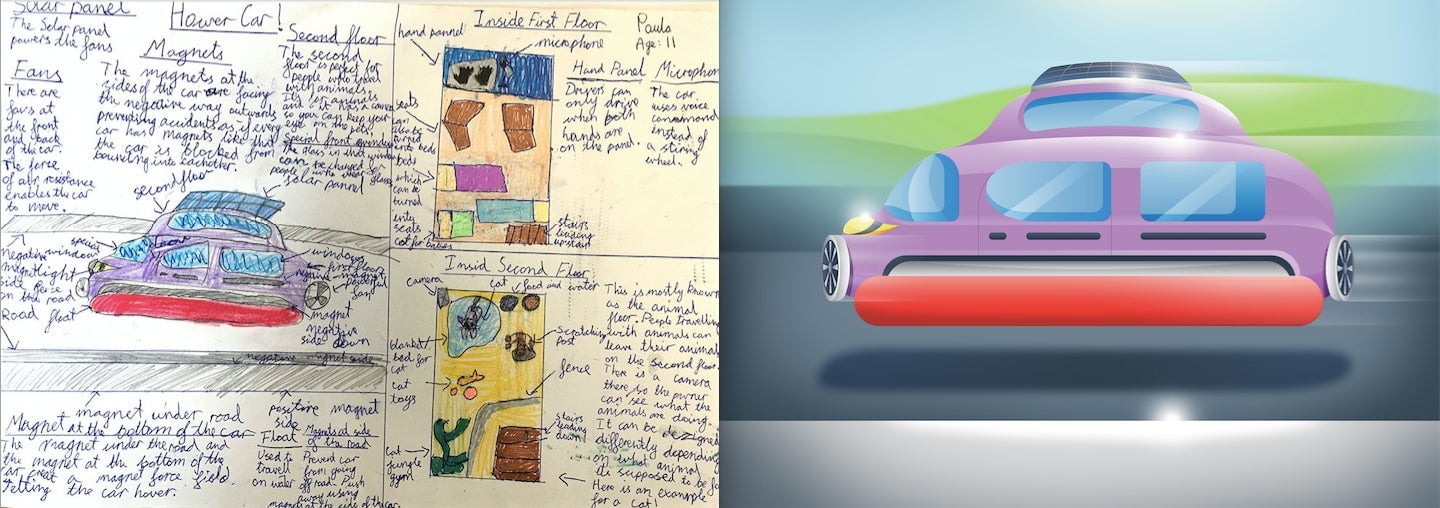 Solar panel
The Solar panel
powers the fans
Hower Car!
Fans
There are
fans at
the front
and back
of the car.
The force
of air resistance
enables the car
to move.
Magnets
The magnets at the
sides of the car are facing
the negative way outwards
preventing accidents as if every
car has magnets like that
the car is blocked from
bouncing into eachother.
Second floor
The second
floor is perfect for
people who travel
with animals.
It's for animals
and it has a camera
so you can keep your
eye on the pets.
Special front window
in that window
can be changed if
people who wear glasses
second floor
solar pannel
special
window
Negative
magnet
side
on the road
light
Road float
windows
first floor
negative magnet
powerful
fan
magnet
negative
side down
negative magnet side
magnet under road
positive magnet
side
Magnet at the bottom of the car
The magnet under the road and
the magnet at the bottom of the
car creat a magnet force field
letting the car hover.
Float
Used to
travel
on water
Magnets at side
of the road
Prevent car
from going
off road. Push
away using
magnets at the side of the car.
Inside First Floor
Paula
Age: 11
hand pannel
microphone
seats
can
also be
turned
into beds
beds
which
can be
turned
into
seats
cot for babies
stairs
leading
upstairs
Hand Panel
Drivers can
only drive
when both
hands are
on the panel.
Microphon
The car
uses voice
command
instead of
a stiring
wheel.
Insid Second Floor
camera
cat
food and water
blanket
bed for
cat
cat
toys
cat
jungle
gym
Scratching
post
fence
Stairs
leading
down
This is mostly known
as the animal
floor. People travelling
with animals can
leave their animals
on the second floor.
There is a camera
there so the owner
can see what the
animals are doing.
It can be dezigned
differently depending
on what animal
its supposed to be for
Here is an example
for a cat!